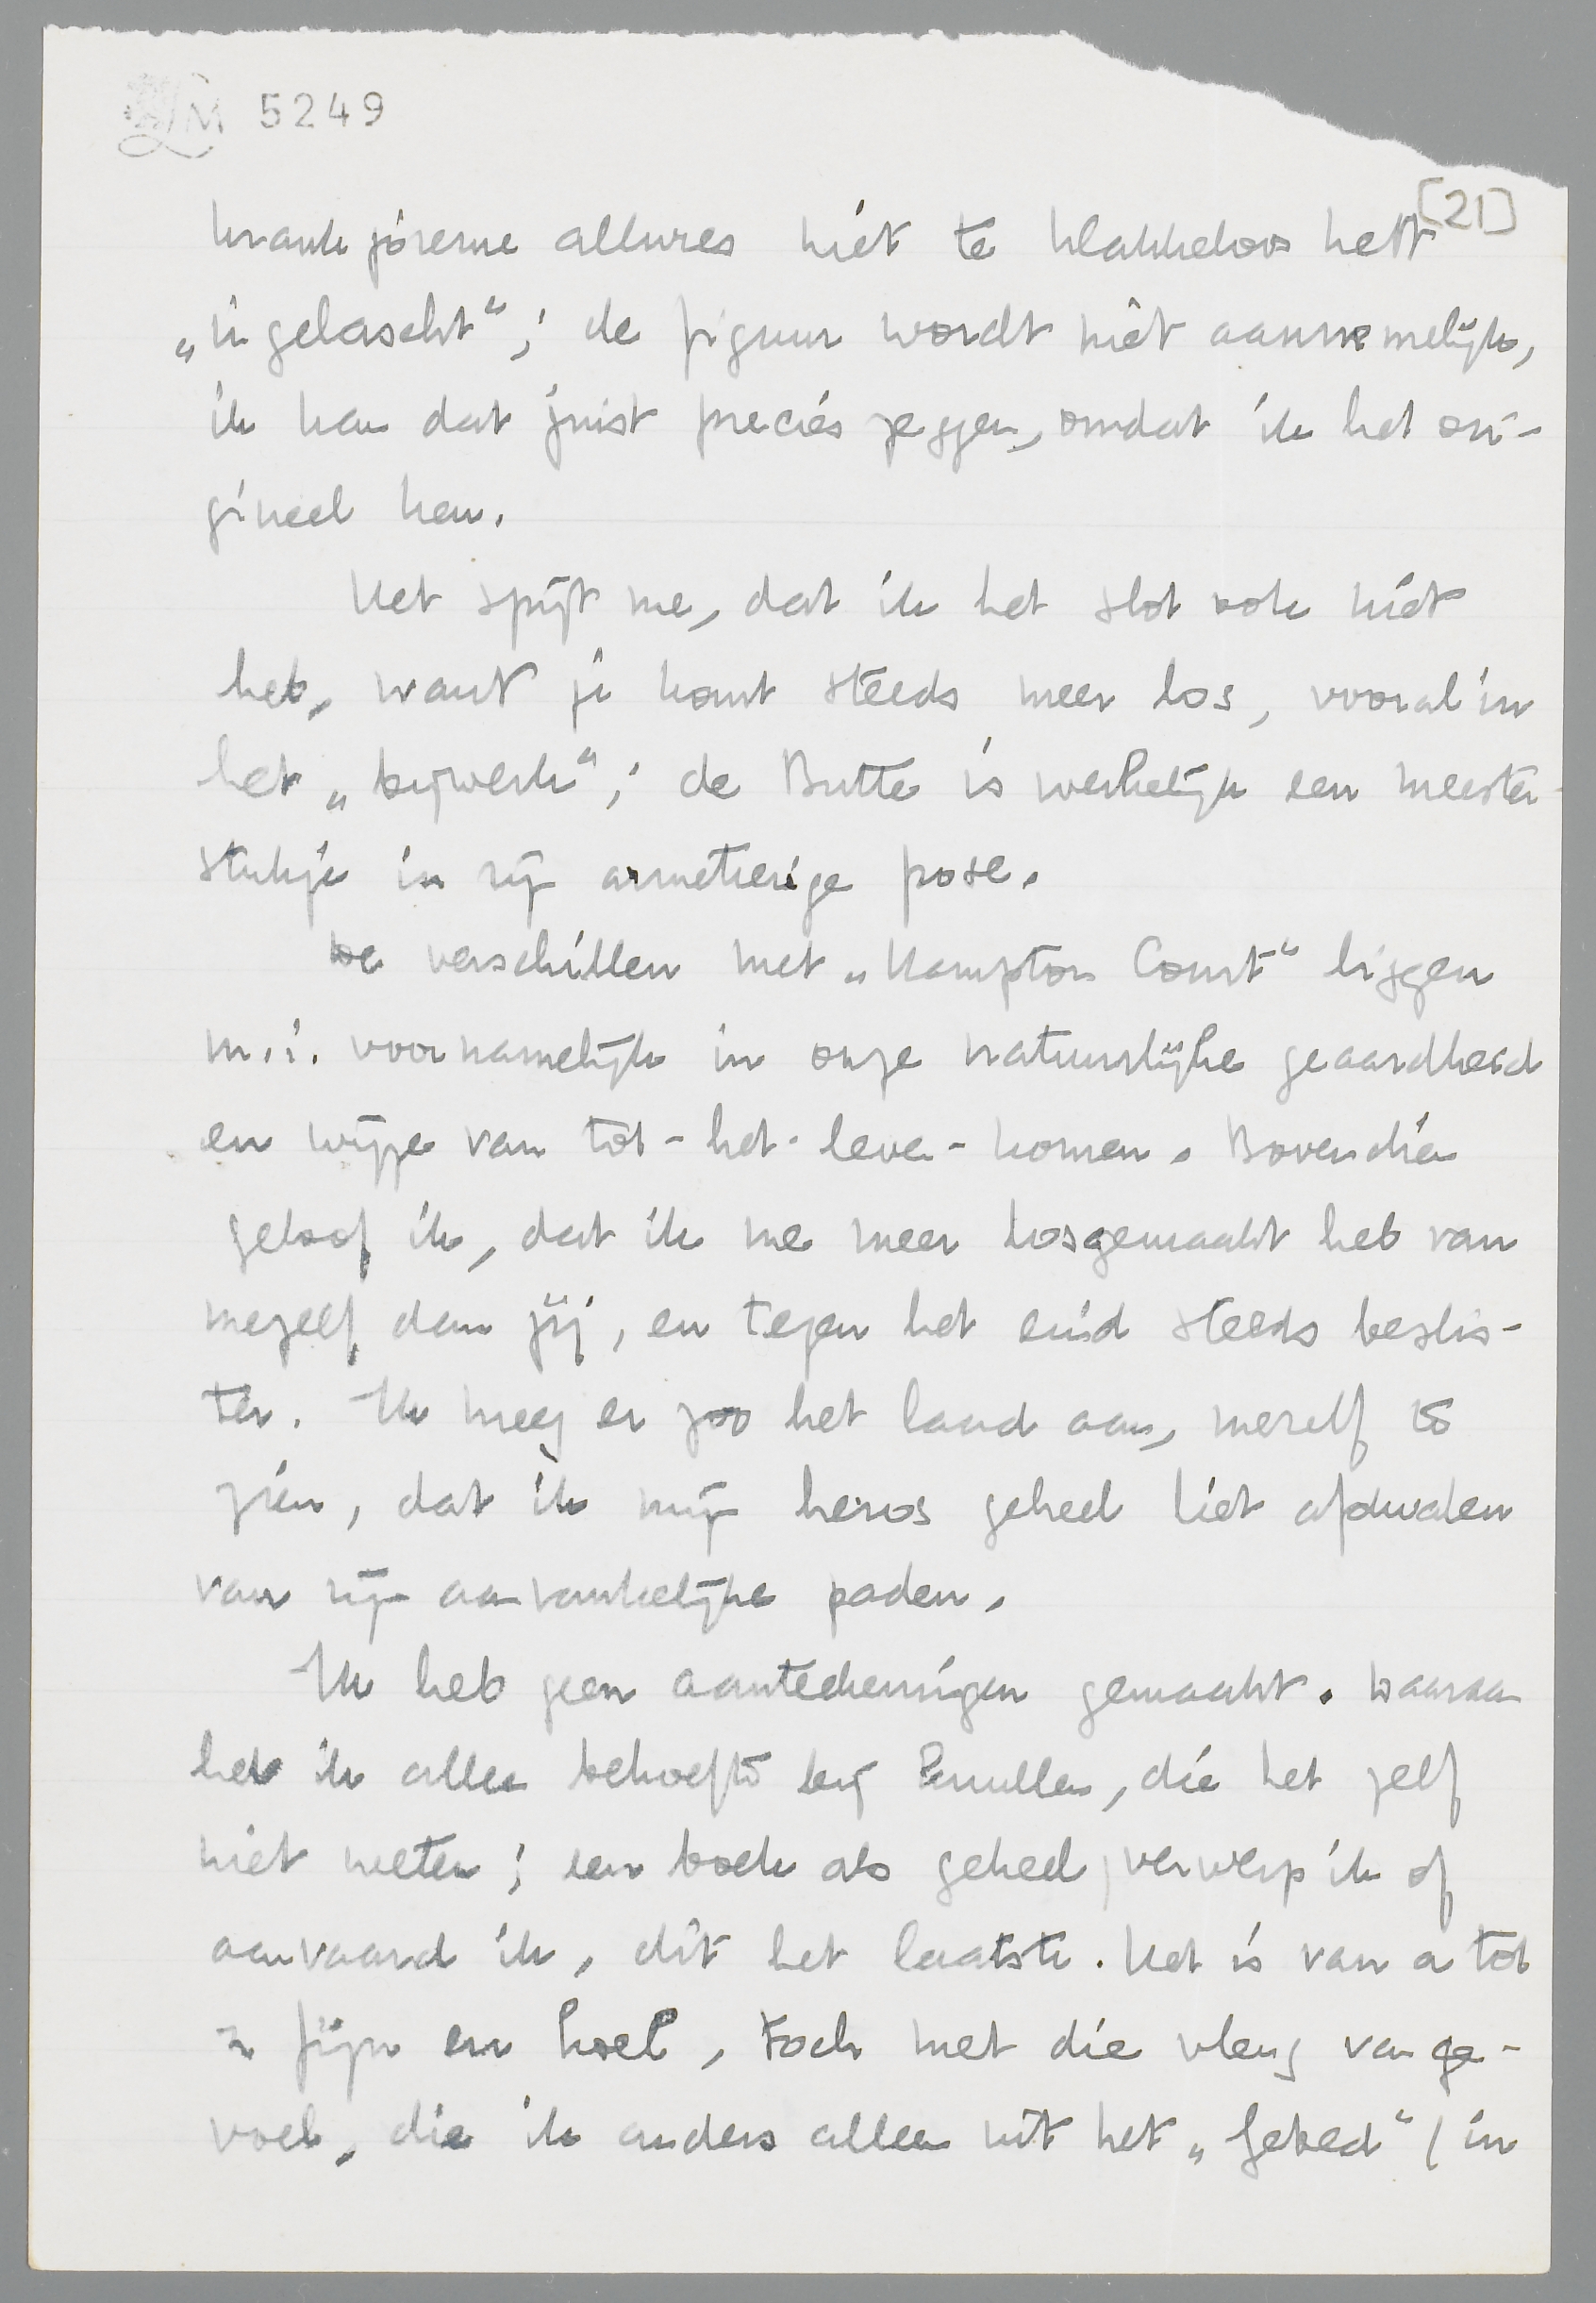 LM 5249
[21]
krankjoreme allures niet te klakkeloos hebt
„ingelascht“; de figuur wordt niet aannemelijk,
ik kan dat juist precies zeggen, omdat ik het ori-
gineel ken.
Het spijt me, dat ik het slot ook niet
heb, want je komt steeds meer los, vooral in
het „bijwerk“; de Butte is werkelijk een meester-
stukje in zijn armetierige pose.
De verschillen met „Hampton Court“ liggen
m.i. voornamelijk in onze natuurlijke geaardheid
en wijze van tot-het-leven-komen. Bovendien
geloof ik, dat ik me meer losgemaakt heb van
mezelf dan jij, en tegen het eind steeds beslis-
ter. Ik kreeg er zoo het land aan, mezelf te
zien, dat ik mijn heros geheel liet afdwalen
van zijn aanvankelijke paden.
Ik heb geen aanteekeningen gemaakt. Daaraan
heb ik alleen behoefte bij prullen, die het zelf
niet weten; een boek als geheel, verwerp ik of
aanvaard ik, dit het laatste. Het is van a tot
z fijn en koel, toch met die vleug van ge-
voel, die ik anders alleen uit het „Gebed“ (in